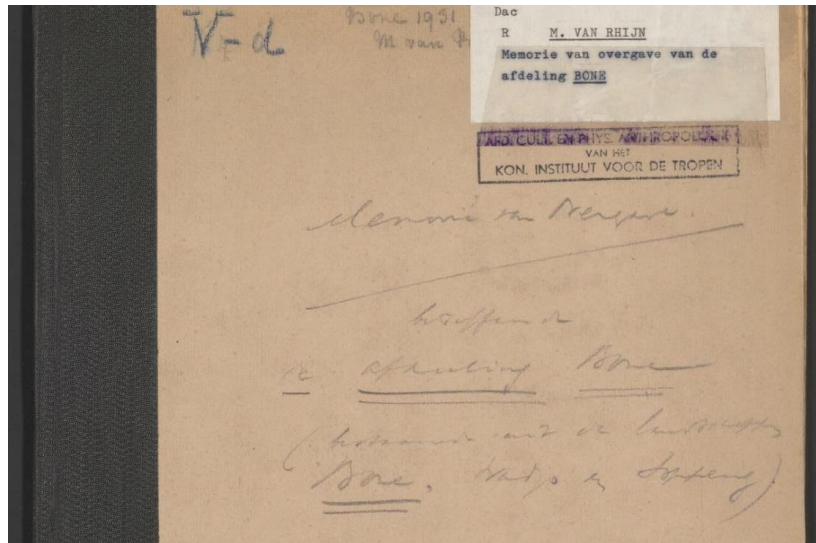 V-d
Bone 1931
M van
Dac
R M. VAN RHIJN
Memorie van overgave van de
afdeling BONE
AFD. CULT. EN PHYS. ANTHROPOLOGIE
VAN HET
KON. INSTITUUT VOOR DE TROPEN
Memorie van Overgave.
betreffende
de afdeeling Bone
(bestaande uit de landschappen
Bone, Wadjo en Soppeng)